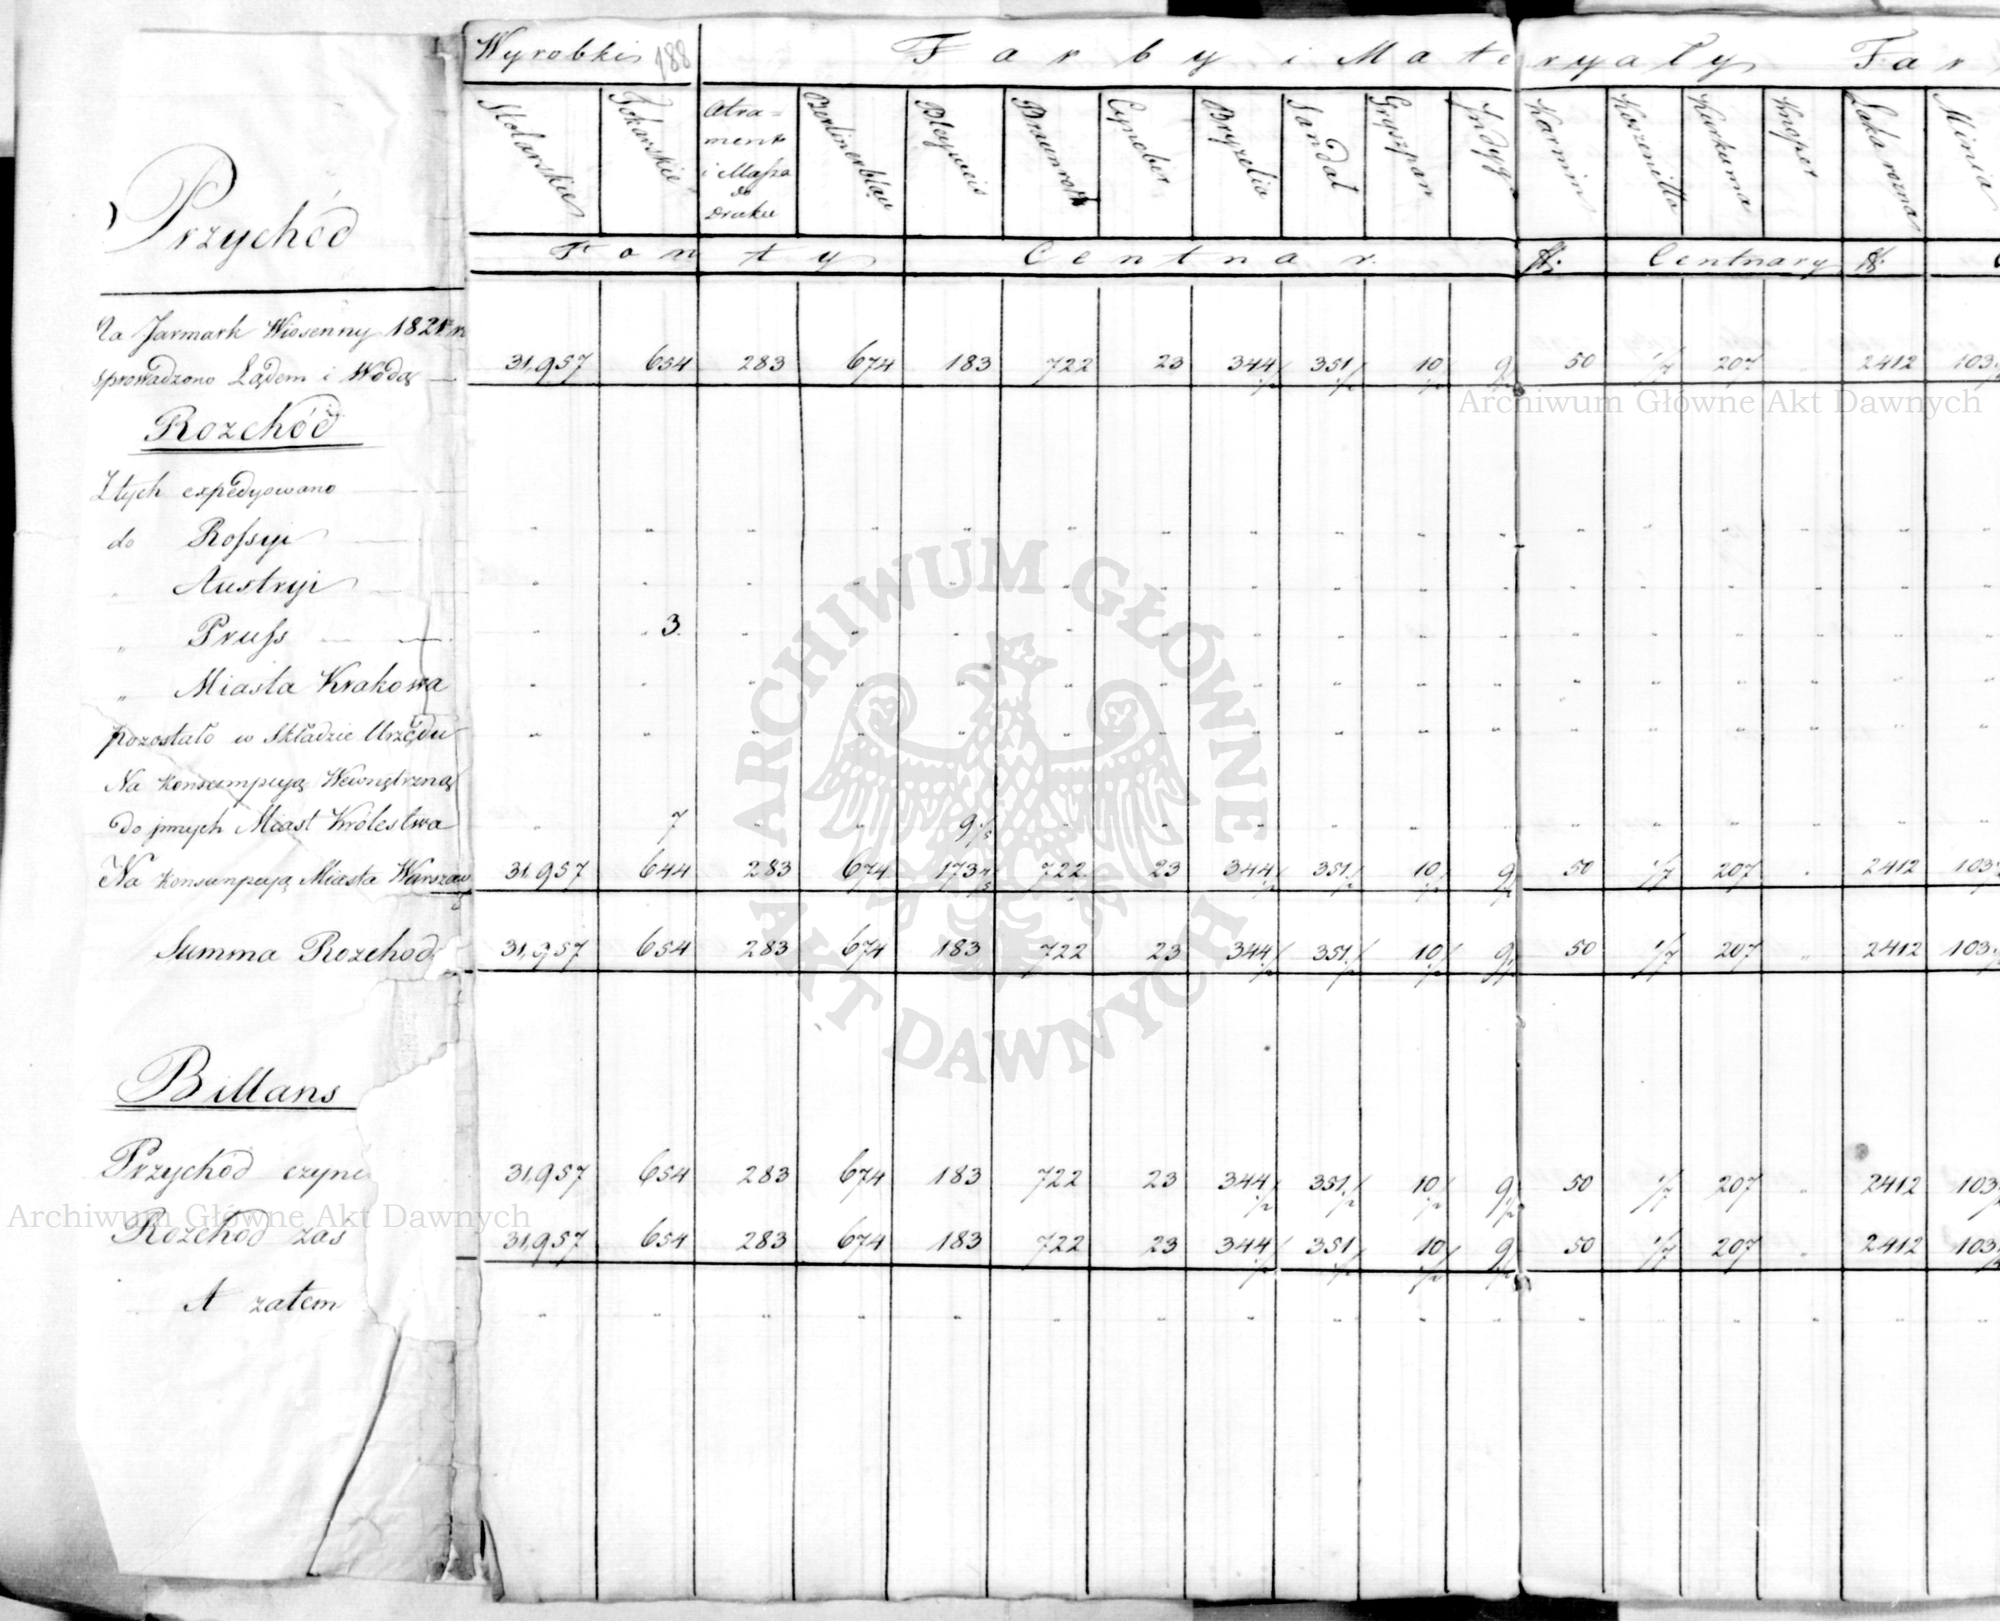 Wyrobki 188 Farby i Materyały Far
Stolarskie Tokarskie Atra= Berlinerblau Bleyweis Braunroth Cynober Bryzelia Sandał Gryszpan Indygo Karmin Koszenilla Kurkuma Knoper Laka rozna Minia
ment
i Massa
do
Druku
Przychód
Funty Centnar. Centnary
Na Jarmark Wiosenny 1821 r.
sprowadzono Lądem i Wodą 31,957 654 283 674 183 722 23 344 1/2 351 1/2 10 1/2 9 1/2 50 1/7 207 " 2412 103
Rozchód
Z tych expedyowano
do Rossyi " " " " " " " " " " " " " " " " "
" Austryi " " " " " " " " " " " " " " " " "
" Pruss " 3. " " " " " " " " " " " " " " "
" Miasta Krakowa " " " " " " " " " " " " " " " " "
Pozostało w Składzie Urzędu " " " " " " " " " " " " " " " " "
Na Konsumpcyą Wewnętrzną
do jnnych Miast Królestwa " 7 " " 9 " " " " " " " " " " " "
Na Konsumpcyą Miasta Warszaw 31,957 644 283 674 173 722 23 344 1/2 351 1/2 10 1/2 9 1/2 50 1/7 207 " 2412 103
Summa Rozchod 31,957 654 283 674 183 722 23 344 1/2 351 1/2 10 1/2 9 1/2 50 1/7 207 " 2412 103
Billans
Przychód czyni 31,957 654 283 674 183 722 23 344 1/2 351 1/2 10 1/2 9 1/2 50 1/7 207 " 2412 103
Rozchód zaś 31,957 654 283 674 183 722 23 344 1/2 351 1/2 10 1/2 9 1/2 50 1/7 207 " 2412 103
A zatem " " " " " " " " " " " " " " " " "
Archiwum Główne Akt Dawnych
ARCHIWUM GŁÓWNE
AKT DAWNYCH
Archiwum Główne Akt Dawnych